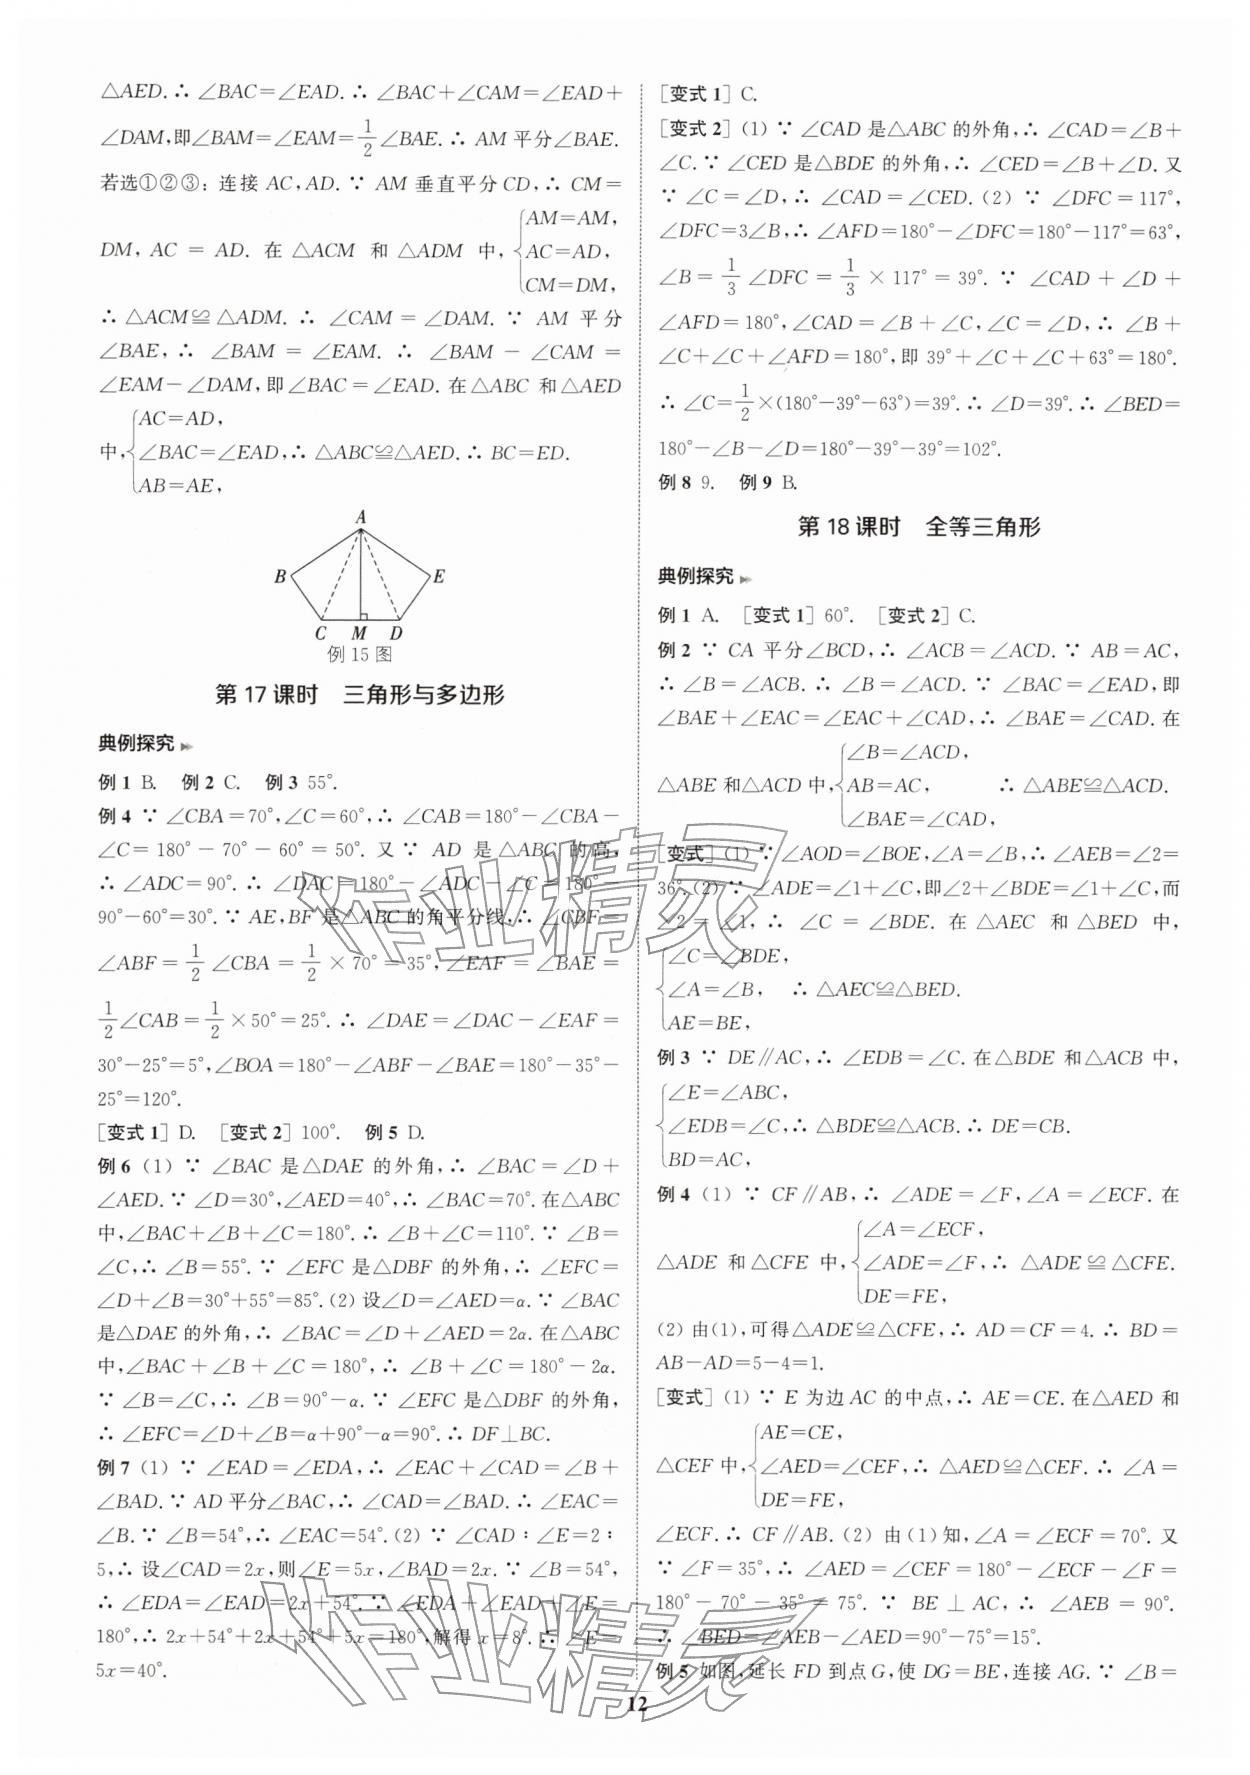 △AED.∴ ∠BAC=∠EAD.∴ ∠BAC+∠CAM=∠EAD+
∠DAM,即∠BAM=∠EAM=1/2∠BAE.∴ AM 平分∠BAE.
若选①②③:连接 AC,AD.∵ AM 垂直平分CD,∴ CM=
DM, AC = AD. 在 △ACM 和 △ADM 中,{AM=AM,
AC=AD,
CM=DM,
∴ △ACM≌△ADM.∴ ∠CAM=∠DAM.∵ AM 平分
∠BAE,∴ ∠BAM=∠EAM.∴ ∠BAM-∠CAM=
∠EAM-∠DAM,即∠BAC=∠EAD.在△ABC 和△AED
中,{AC=AD,
∠BAC=∠EAD,∴ △ABC≌△AED.∴ BC=ED.
AB=AE,
A
B
E
C
M
D
例 15 图
第 17 课时 三角形与多边形
典例探究
例 1 B. 例 2 C. 例 3 55°.
例 4 ∵ ∠CBA=70°,∠C=60°,∴ ∠CAB=180°-∠CBA-
∠C=180°-70°-60°=50°. 又∵ AD 是△ABC 的高,
∴ ∠ADC=90°.∴ ∠DAC=180°-∠ADC-∠C=180°-
90°-60°=30°.∵ AE,BF 是△ABC的角平分线,∴ ∠CBF=
∠ABF=1/2∠CBA=1/2×70°=35°,∠EAF=∠BAE=
1/2∠CAB=1/2×50°=25°.∴ ∠DAE=∠DAC-∠EAF=
30°-25°=5°,∠BOA=180°-∠ABF-∠BAE=180°-35°-
25°=120°.
[变式 1] D. [变式 2] 100°. 例 5 D.
例 6 (1) ∵ ∠BAC 是△DAE 的外角,∴ ∠BAC=∠D+
∠AED.∵ ∠D=30°,∠AED=40°,∴ ∠BAC=70°.在△ABC
中,∠BAC+∠B+∠C=180°.∴ ∠B+∠C=110°.∵ ∠B=
∠C,∴ ∠B=55°.∵ ∠EFC 是△DBF 的外角,∴ ∠EFC=
∠D+∠B=30°+55°=85°.(2) 设∠D=∠AED=α.∵ ∠BAC
是△DAE 的外角,∴ ∠BAC=∠D+∠AED=2α.在△ABC
中,∠BAC+∠B+∠C=180°,∴ ∠B+∠C=180°-2α.
∵ ∠B=∠C,∴ ∠B=90°-α.∵ ∠EFC 是△DBF 的外角,
∴ ∠EFC=∠D+∠B=α+90°-α=90°.∴ DF⊥BC.
例 7 (1) ∵ ∠EAD=∠EDA,∴ ∠EAC+∠CAD=∠B+
∠BAD.∵ AD 平分∠BAC,∴ ∠CAD=∠BAD.∴ ∠EAC=
∠B.∵ ∠B=54°,∴ ∠EAC=54°.(2) ∵ ∠CAD∶∠E=2∶
5,∴ 设∠CAD=2x,则∠E=5x,∠BAD=2x.∵ ∠B=54°,
∴ ∠EDA=∠EAD=2x+54°.∵ ∠EDA+∠EAD+∠E=
180°,∴ 2x+54°+2x+54°+5x=180°,解得 x=8°.∴ ∠E=
5x=40°.
[变式 1] C.
[变式 2] (1) ∵ ∠CAD 是△ABC 的外角,∴ ∠CAD=∠B+
∠C.∵ ∠CED 是△BDE 的外角,∴ ∠CED=∠B+∠D.又
∵ ∠C=∠D,∴ ∠CAD=∠CED.(2) ∵ ∠DFC=117°,
∠DFC=3∠B,∴ ∠AFD=180°-∠DFC=180°-117°=63°,
∠B=1/3∠DFC=1/3×117°=39°.∵ ∠CAD+∠D+
∠AFD=180°,∠CAD=∠B+∠C,∠C=∠D,∴ ∠B+
∠C+∠C+∠AFD=180°,即 39°+∠C+∠C+63°=180°.
∴ ∠C=1/2×(180°-39°-63°)=39°.∴ ∠D=39°.∴ ∠BED=
180°-∠B-∠D=180°-39°-39°=102°.
例 8 9. 例 9 B.
第 18 课时 全等三角形
典例探究
例 1 A. [变式 1] 60°. [变式 2] C.
例 2 ∵ CA 平分∠BCD,∴ ∠ACB=∠ACD.∵ AB=AC,
∴ ∠B=∠ACB.∴ ∠B=∠ACD.∵ ∠BAC=∠EAD,即
∠BAE+∠EAC=∠EAC+∠CAD,∴ ∠BAE=∠CAD.在
△ABE 和△ACD 中,{∠B=∠ACD,
AB=AC, ∴ △ABE≌△ACD.
∠BAE=∠CAD,
[变式] (1) ∵ ∠AOD=∠BOE,∠A=∠B,∴ ∠AEB=∠2=
36°.(2) ∵ ∠ADE=∠1+∠C,即∠2+∠BDE=∠1+∠C,而
∠2=∠1,∴ ∠C=∠BDE.在△AEC 和△BED 中,
{∠C=∠BDE,
∠A=∠B, ∴ △AEC≌△BED.
AE=BE,
例 3 ∵ DE∥AC,∴ ∠EDB=∠C.在△BDE 和△ACB 中,
{∠E=∠ABC,
∠EDB=∠C,∴ △BDE≌△ACB.∴ DE=CB.
BD=AC,
例 4 (1) ∵ CF∥AB,∴ ∠ADE=∠F,∠A=∠ECF.在
△ADE 和△CFE 中,{∠A=∠ECF,
∠ADE=∠F,∴ △ADE≌△CFE.
DE=FE,
(2) 由(1),可得△ADE≌△CFE,∴ AD=CF=4.∴ BD=
AB-AD=5-4=1.
[变式] (1) ∵ E 为边 AC 的中点,∴ AE=CE.在△AED 和
△CEF 中,{AE=CE,
∠AED=∠CEF,∴ △AED≌△CEF.∴ ∠A=
DE=FE,
∠ECF.∴ CF∥AB.(2) 由(1)知,∠A=∠ECF=70°.又
∵ ∠F=35°,∴ ∠AED=∠CEF=180°-∠ECF-∠F=
180°-70°-35°=75°.∵ BE⊥AC,∴ ∠AEB=90°.
∴ ∠BED=∠AEB-∠AED=90°-75°=15°.
例 5 如图,延长 FD 到点 G,使 DG=BE,连接 AG.∵ ∠B=
12
作业精灵
作业精灵